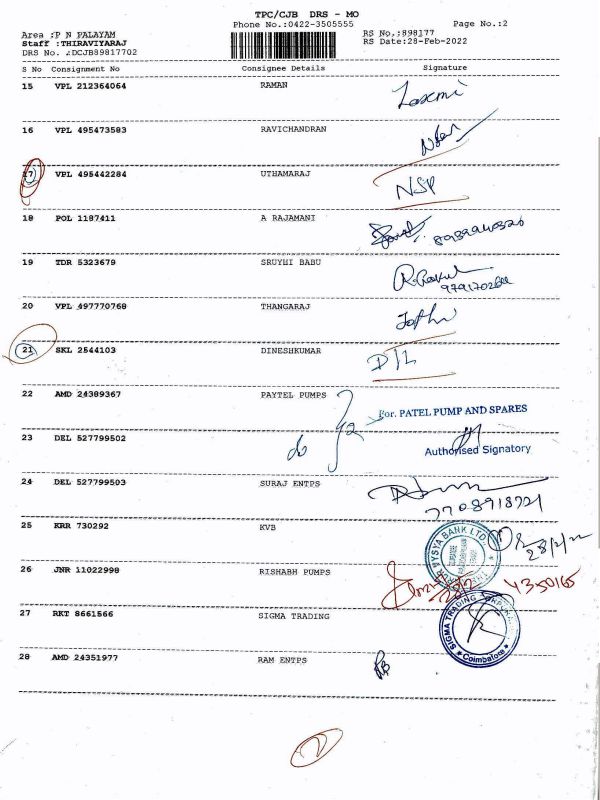 TPC/CJB DRS - MO
Phone No.:0422-3505555
Page No.:2
Area :P N PALAYAM
RS No.:898177
Staff :THIRAVIYARAJ
RS Date:28-Feb-2022
DRS No. :DCJB89817702
S No Consignment No Consignee Details Signature
15 VPL 212364064 RAMAN Laxmi
16 VPL 495473583 RAVICHANDRAN
17 VPL 495442284 UTHAMARAJ NSP
18 POL 1187411 A RAJAMANI
19 TDR 5323679 SRUYHI BABU
20 VPL 497770768 THANGARAJ
21 SKL 2544103 DINESHKUMAR D/L
22 AMD 24389367 PAYTEL PUMPS
For. PATEL PUMP AND SPARES
23 DEL 527799502
Authorised Signatory
24 DEL 527799503 SURAJ ENTPS
7708918721
25 KRR 730292 KVB
28/2/22
26 JNR 11022998 RISHABH PUMPS
4350165
27 RKT 8661566 SIGMA TRADING
Coimbatore
28 AMD 24351977 RAM ENTPS
2